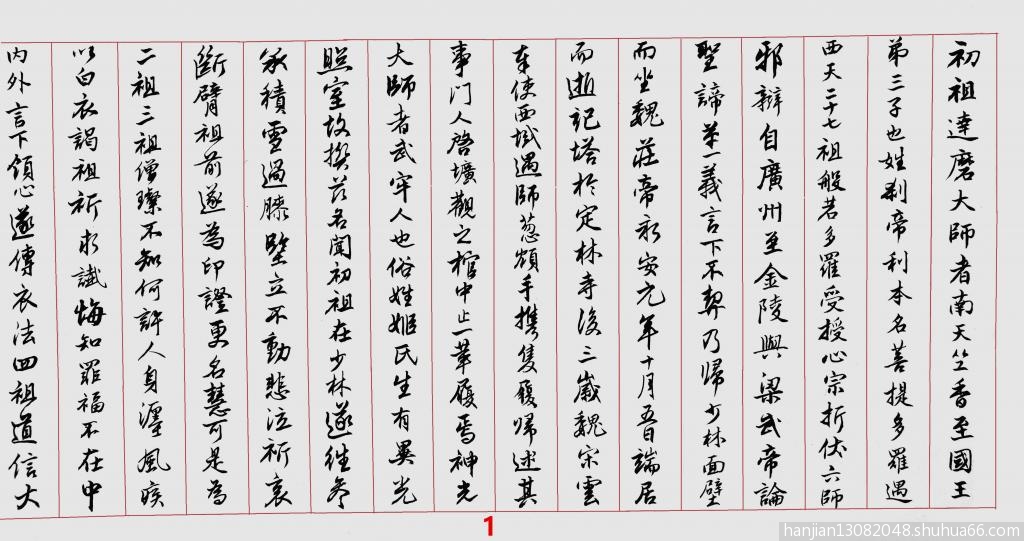 初祖達磨大師者南天竺香至國王
弟三子也姓剎帝利本名菩提多羅遇
西天二十七祖般若多羅受授心宗折伏六師
邪辯自廣州至金陵與梁武帝論
聖諦第一義言下不契乃歸少林面壁
而坐魏莊帝永安元年十月五日端居
而逝記塔於定林寺後三歲魏宋雲
奉使西域遇師葱嶺手携隻履歸述其
事門人啓壙觀之棺中止一革履焉神光
大師者武牢人也俗姓姬氏生有異光
照室故撰茲名聞初祖在少林遂往參
承積雪過膝堅立不動悲泣祈哀
斷臂祖前遂為印證更名慧可是為
二祖三祖僧璨不知何許人身瀍風疾
以白衣謁祖祈求讖悔知罪福不在中
內外言下領心遂傳衣法四祖道信大
1
hanjian13082048.shuhua66.com